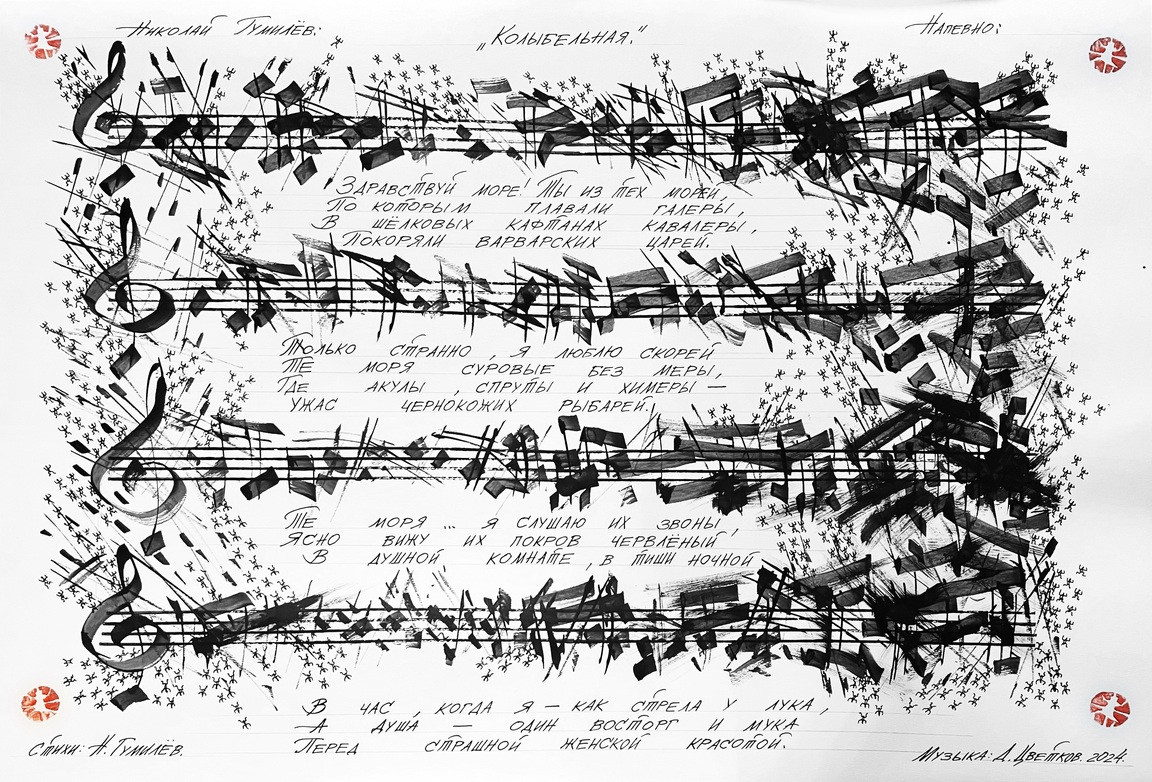 Николай Гумилёв:
„Колыбельная.“
Напевно:
Здравствуй море! Ты из тех морей,
По которым плавали галеры,
В шёлковых кафтанах кавалеры,
Покоряли варварских царей.
Только странно, я люблю скорей
Те моря суровые без меры,
Где акулы, спруты и химеры —
Ужас чернокожих рыбарей.
Те моря... я слушаю их звоны,
Ясно вижу их покров червлёный
В душной комнате, в тиши ночной
В час, когда я — как стрела у лука,
А душа — один восторг и мука
Перед страшной женской красотой.
Стихи: Н. Гумилёв.
Музыка: Д. Цветков. 2024.